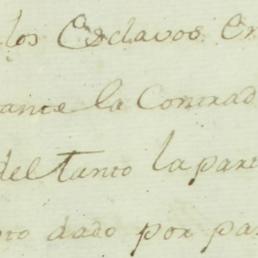 los Esclavos en
ante la Contrad
del tanto la part
to dado por par